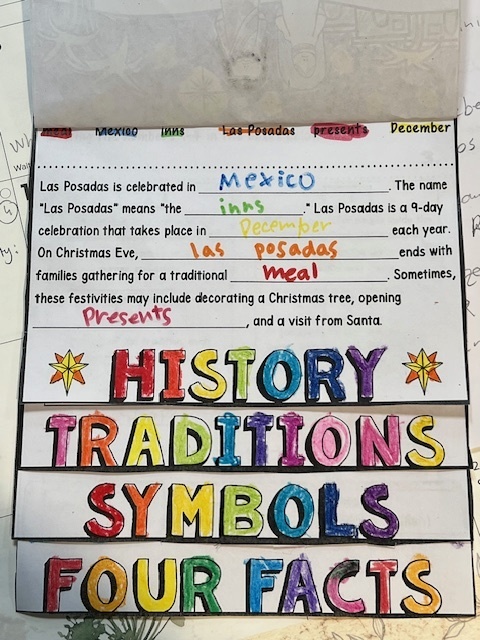 meal Mexico inns Las Posadas presents December
Las Posadas is celebrated in Mexico. The name
"Las Posadas" means "the inns." Las Posadas is a 9-day
celebration that takes place in December each year.
On Christmas Eve, las posadas ends with
families gathering for a traditional meal. Sometimes,
these festivities may include decorating a Christmas tree, opening
Presents, and a visit from Santa.
HISTORY
TRADITIONS
SYMBOLS
FOUR FACTS